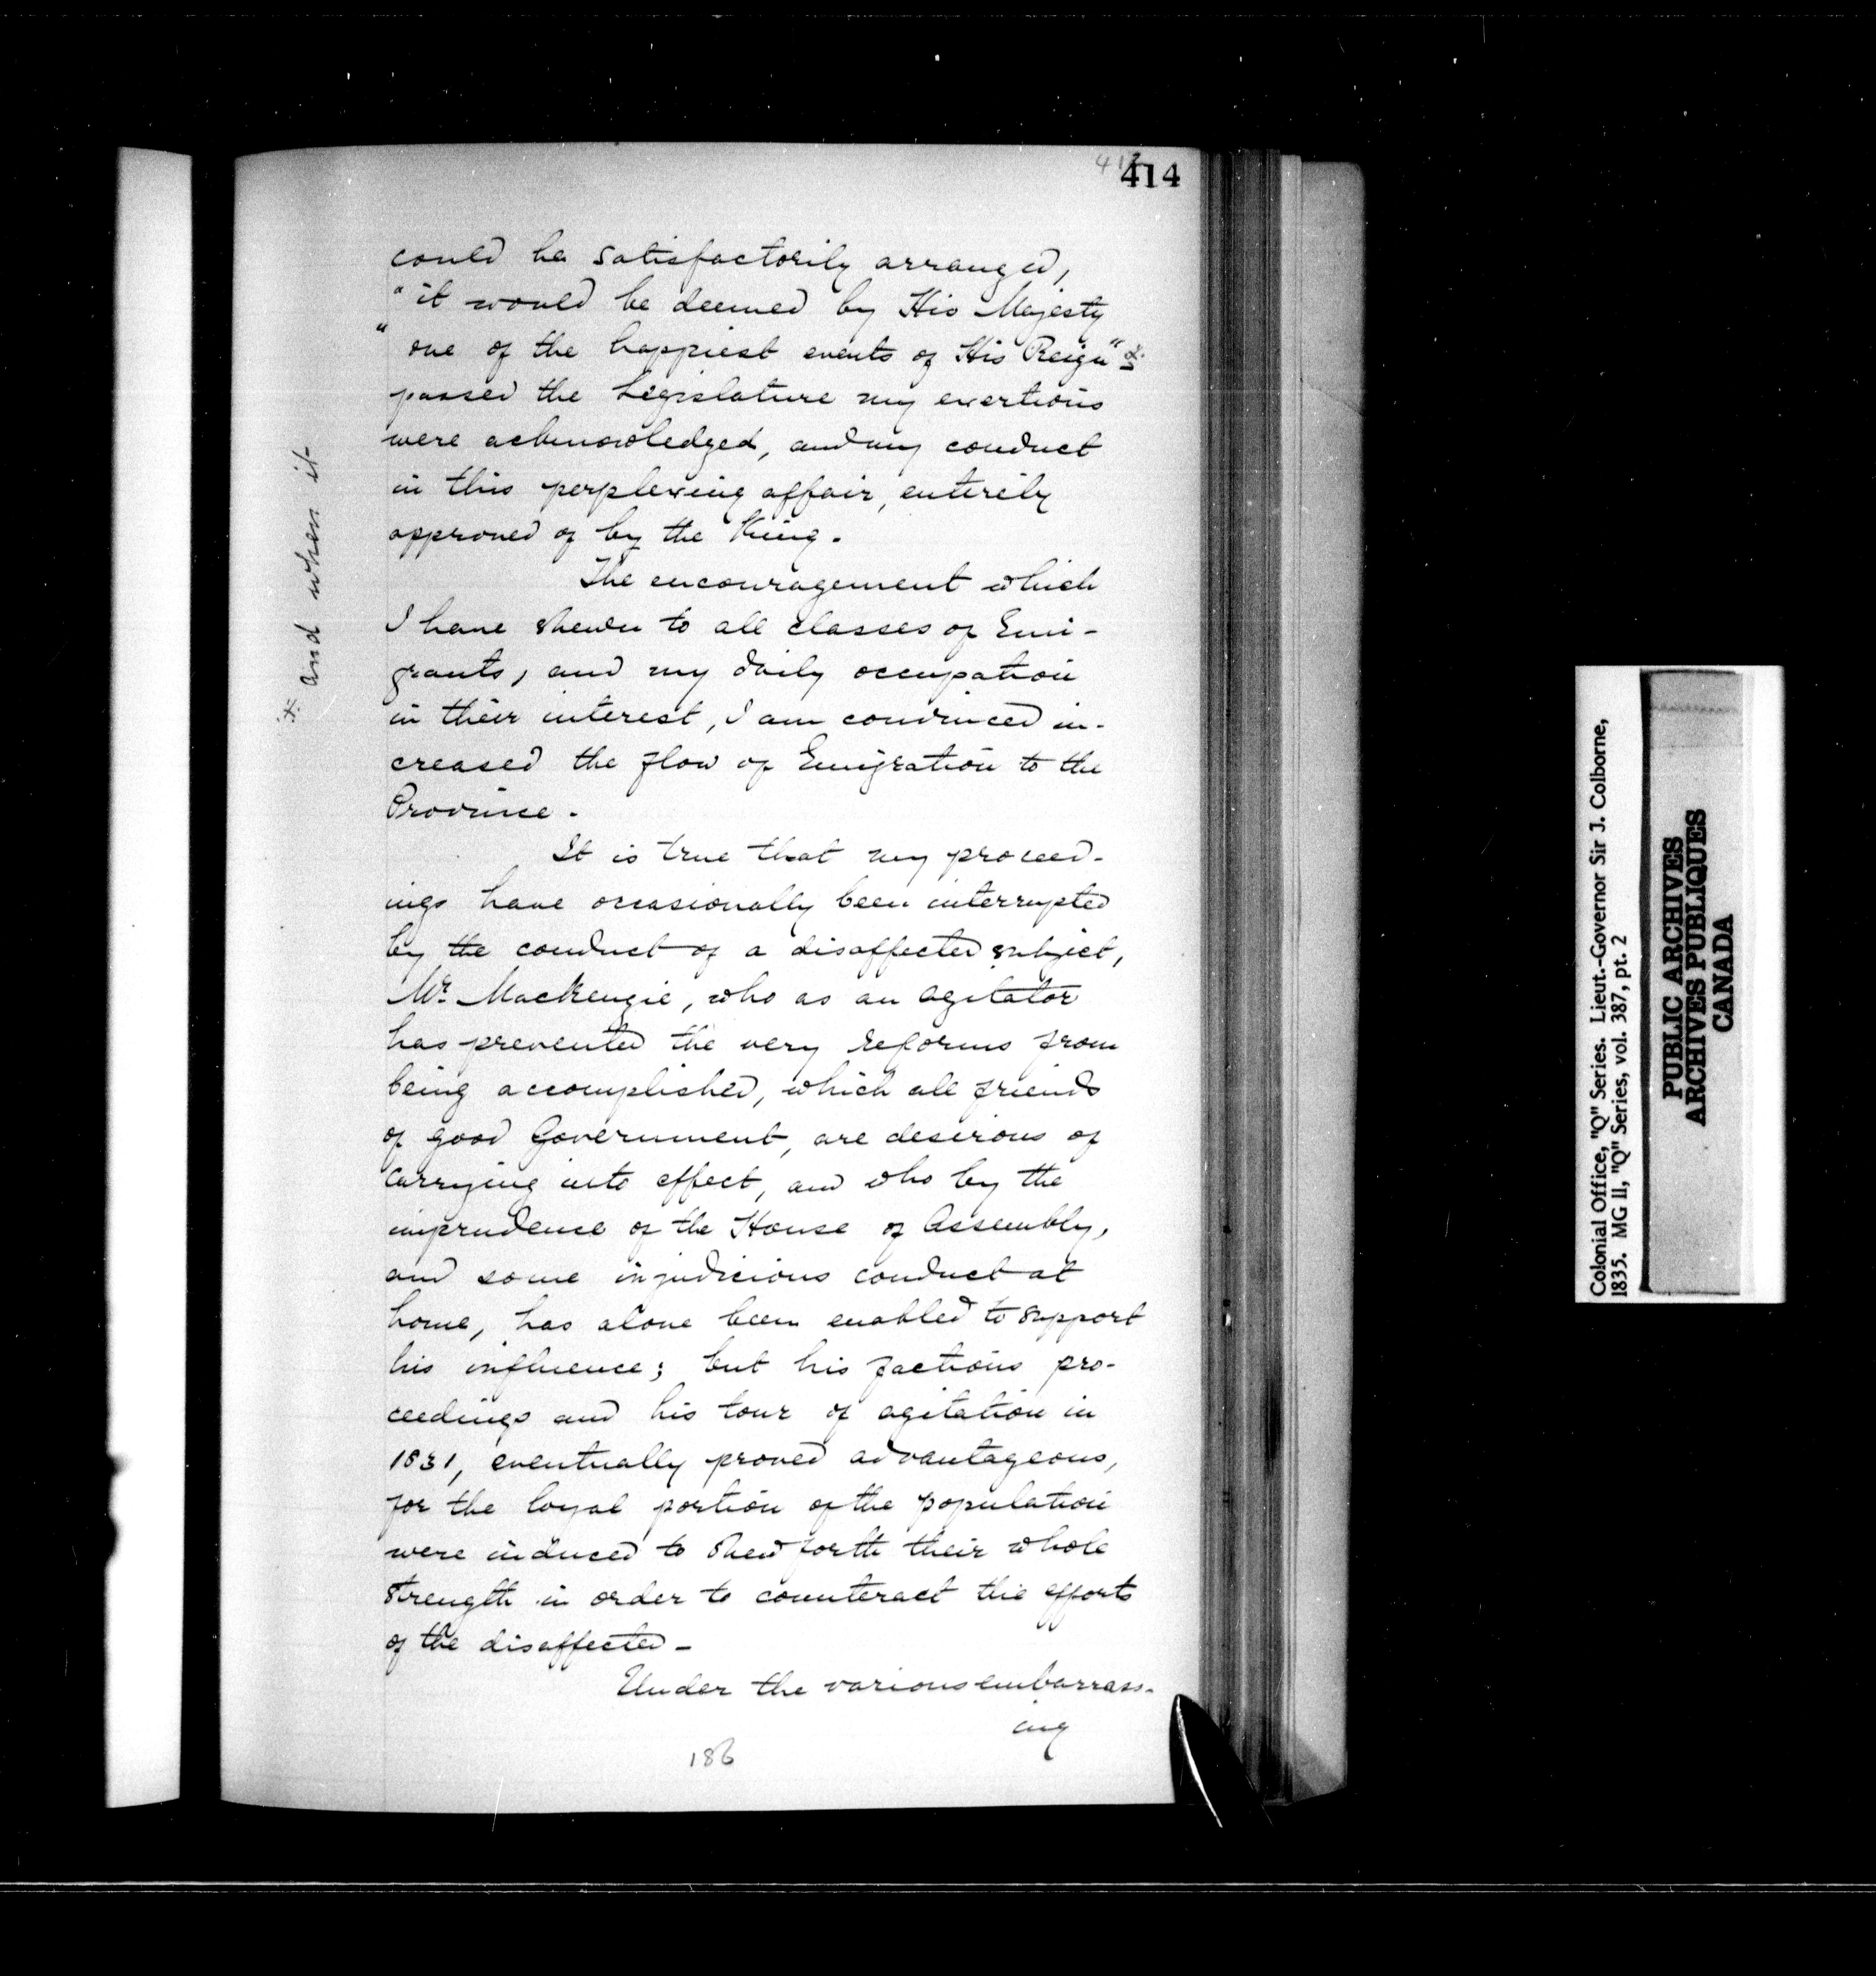 414
could be satisfactorily arranged,
"it would be deemed by His Majesty
"one of the happiest events of His Reign" x
passed the Legislature my exertions
were acknowledged, and my conduct
in this perplexing affair, entirely
approved of by the King.
The encouragement which
I have shewn to all classes of Emi-
grants, and my daily occupation
in their interest, I am convinced in-
creased the flow of Emigration to the
Province.
It is true that my proceed-
ings have occasionally been interrupted
by the conduct of a disaffected subject,
Mr. MacKenzie, who as an agitator
has prevented the very reforms from
being accomplished, which all friends
of good Government, are desirous of
carrying into effect, and who by the
imprudence of the House of Assembly,
and some injudicious conduct at
home, has alone been enabled to support
his influence; but his factious pro-
ceedings and his tour of agitation in
1831, eventually proved advantageous,
for the loyal portion of the population
were induced to shew forth their whole
strength in order to counteract the efforts
of the disaffected -
Under the various embarrass-
ing
186
x and when it
Colonial Office, "Q" Series. Lieut.-Governor Sir J. Colborne,
1835. MG 11, "Q" Series, vol. 387, pt. 2
PUBLIC ARCHIVES
ARCHIVES PUBLIQUES
CANADA